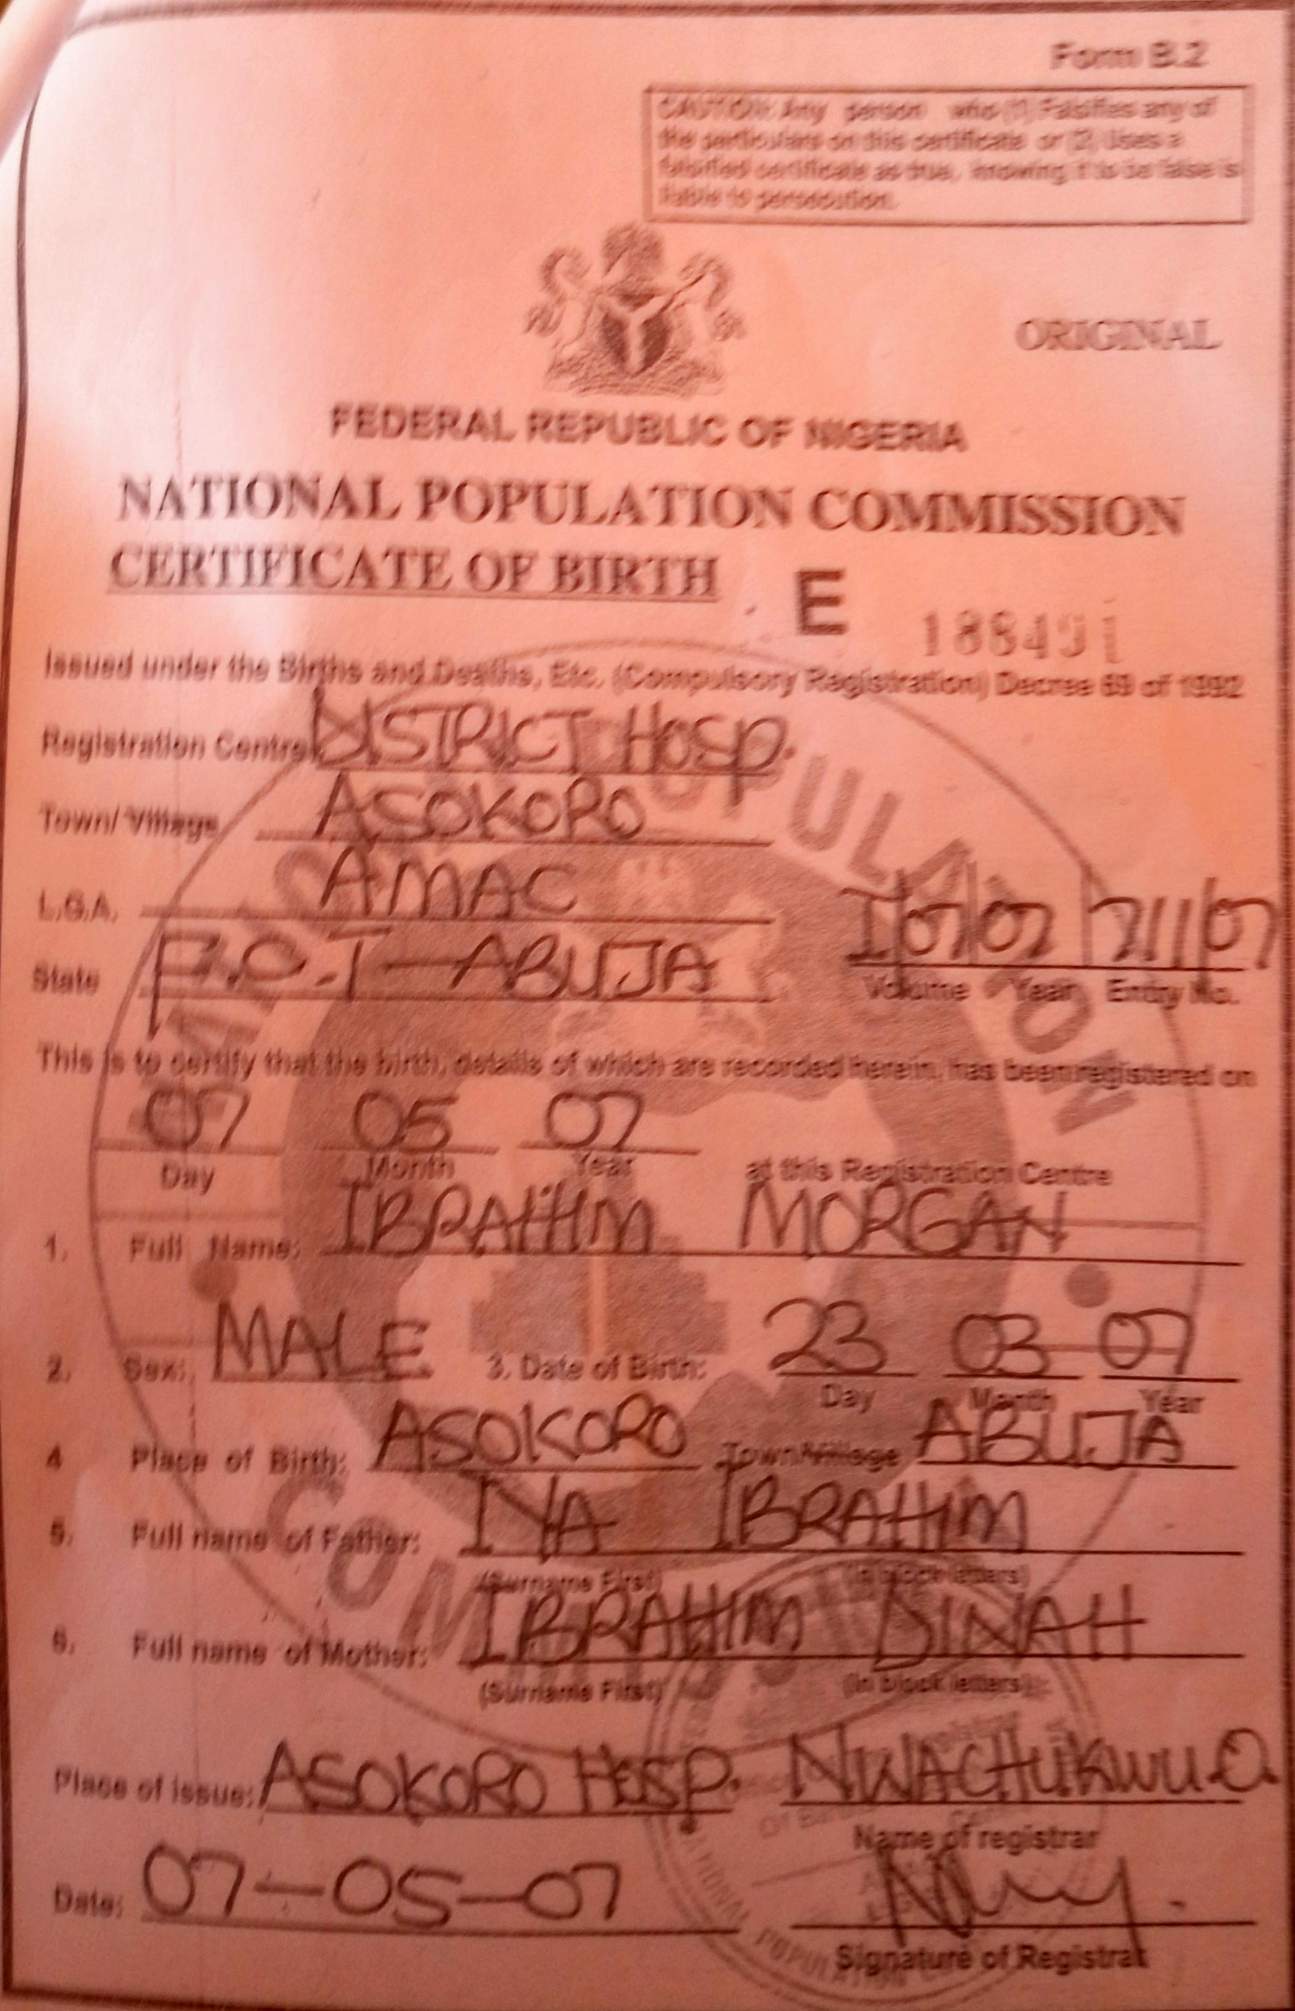 Form B.2
CAUTION: Any person who (1) Falsifies any of
the particulars on this certificate or (2) Uses a
falsified certificate as true, knowing it to be false is
liable to persecution.
ORIGINAL
FEDERAL REPUBLIC OF NIGERIA
NATIONAL POPULATION COMMISSION
CERTIFICATE OF BIRTH E
Issued under the Births and Deaths, Etc. (Compulsory Registration) Decree 69 of 1992
Registration Centre DISTRICT HOSP.
Town/Village ASOKORO
L.G.A. AMAC
State F.C.T-ABUJA
Volume Year Entry No.
This is to certify that the birth, details of which are recorded herein, has been registered on
07 05 07
Day Month Year at this Registration Centre
1. Full Name: IBRAHIM MORGAN
2. Sex: MALE 3. Date of Birth: 23 03 07
Day Month Year
4 Place of Birth: ASOKORO Town/Village ABUJA
5. Full name of Father: IYA IBRAHIM
(Surname First) (In block letters)
6. Full name of Mother: IBRAHIM DINAH
(Surname First) (In block letters)
Place of issue: ASOKORO HOSP. NWACHUKWU O
Name of registrar
Date: 07-05-07
Signature of Registrar